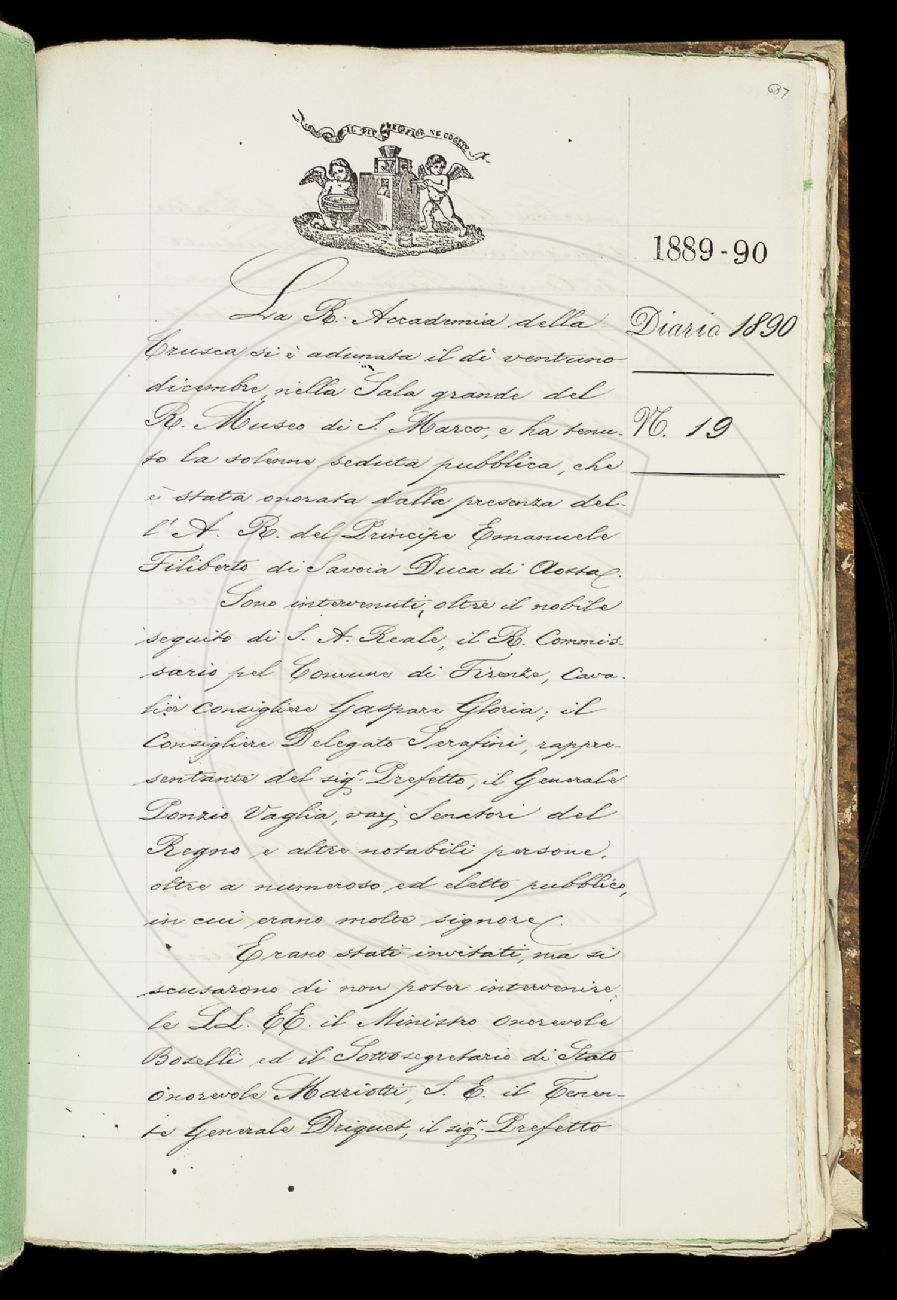 637
IL PIÙ BEL FIOR NE COGLIE
1889-90
Diario 1890
N. 19
La R. Accademia della
Crusca si è adunata il dì ventuno
dicembre, nella Sala grande del
R. Museo di S. Marco, e ha tenu-
to la solenne seduta pubblica, che
è stata onorata dalla presenza del-
l' A. R. del Principe Emanuele
Filiberto di Savoia Duca di Aosta.
Sono intervenuti, oltre il nobile
seguito di S. A. Reale, il R. Commis-
sario pel Comune di Firenze, Cava-
lier Consigliere Gaspare Gloria; il
Consigliere Delegato Serafini, rappre-
sentante del sig.r Prefetto, il Generale
Ponzio Vaglia, varj Senatori del
Regno e altre notabili persone,
oltre a numeroso ed eletto pubblico,
in cui erano molte signore.
Erano stati invitati, ma si
scusarono di non poter intervenire,
le LL. EE. il Ministro onorevole
Boselli ed il Sottosegretario di Stato
onorevole Mariotti, S. E. il Tenen-
te Generale Driquet, il sig.r Prefetto